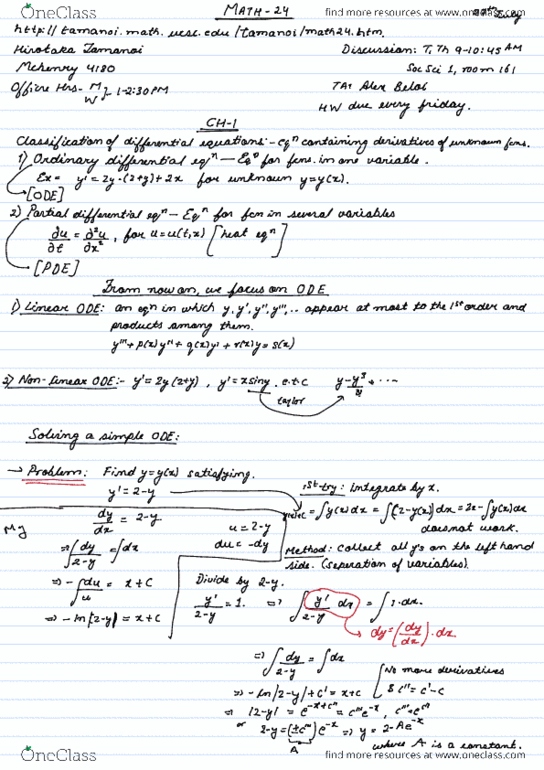 OneClass
find more resources at oneclass.com
MATH-24
http://tamanoi.math.ucsc.edu/tamanoi/math24.htm
Hirotaka Tamanoi
Discussion: T, Th 9-10:45 AM
Mchenry 4180
Soc Sci 1, room 161
Office Hrs- M W 1-2:30 PM
TA: Alex Beloi
HW due every friday.
CH-1
Classification of differential equations:- eqⁿ containing derivatives of unknown fcns.
1) Ordinary differential eqⁿ — Eqⁿ for fcns. in one variable.
Ex = y' = 2y·(2+y)+2x for unknown y=y(x).
[ODE]
2) Partial differential eqⁿ — Eqⁿ for fcn in several variables
∂u/∂t = ∂²u/∂x², for u=u(t,x) [heat eqⁿ]
[PDE]
From now on, we focus on ODE
1) Linear ODE: an eqⁿ in which y, y', y'', y''',.. appear at most to the 1st order and
products among them.
y''' + p(x)y'' + q(x)y' + r(x)y = s(x)
2) Non-linear ODE:- y' = 2y(2+y), y' = x siny. e.t.c y-y³/3! + ...
taylor
Solving a simple ODE:
→ Problem: Find y=y(x) satisfying.
y' = 2-y
1st-try: integrate by x.
= ∫y'(x)dx = ∫(2-y(x))dx = 2x - ∫y(x)dx
does not work.
Method: Collect all y's on the left hand
side. (seperation of variables).
My
dy/dx = 2-y
u = 2-y
du = -dy
⇒ ∫dy/2-y = ∫dx
⇒ -∫du/u = x+C
⇒ -ln|2-y| = x+C
Divide by 2-y.
y'/2-y = 1. ⇒ ∫ y'/2-y dx = ∫1·dx.
dy = (dy/dx)·dx.
⇒ ∫dy/2-y = ∫dx
⇒ -ln|2-y| + c' = x+c
[No more derivatives
& c'' = c'-c
⇒ |2-y| = e^(-x+c'') = c'''e^-x, c'''=e^c''
or 2-y = (±c''')e^-x ⇒ y = 2-Ae^-x
A
where A is a constant.
OneClass
find more resources at oneclass.com